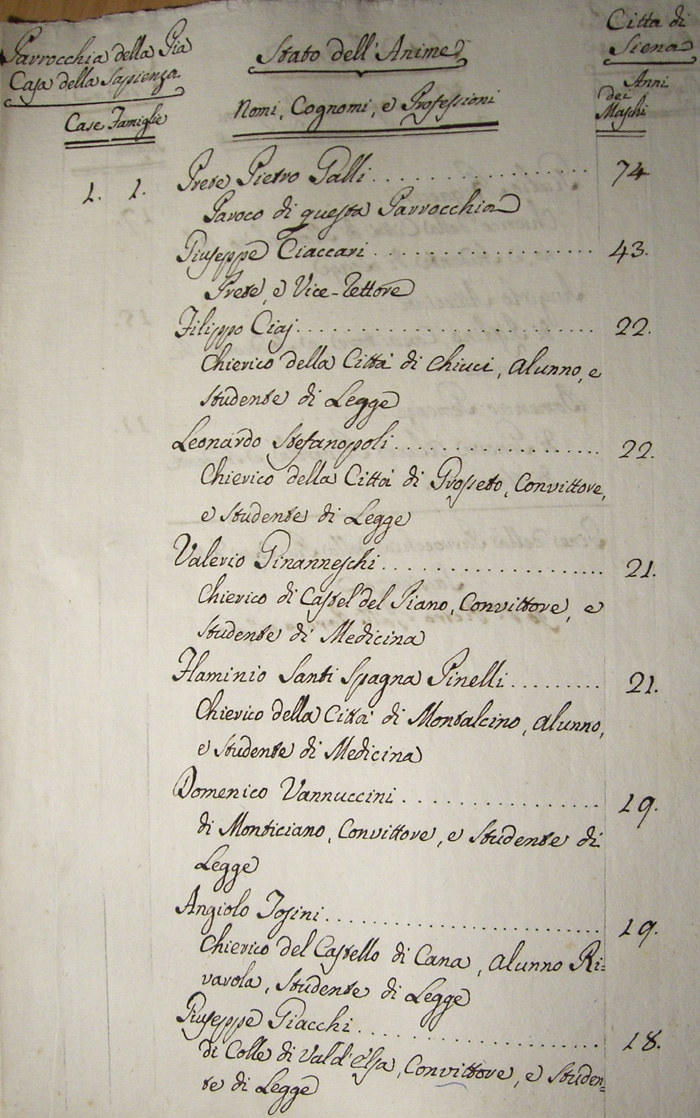 Parrocchia della Pia
Casa della Sapienza
Stato dell'Anime
Città di
Siena
Case Famiglie
Nomi, Cognomi, e Professioni
Anni
dei
Maschi
1. 1. Prete Pietro Galli 74
Paroco di questa Parrocchia
Giuseppe Ciaccari 43.
Prete, e Vice-Rettore
Filippo Ciaj 22.
Chierico della Città di Chiuci, Alunno, e
Studente di Legge
Leonardo Stefanopoli 22.
Chierico della Città di Grosseto, Convittore,
e Studente di Legge
Valerio Ginanneschi 21.
Chierico di Castel del Piano, Convittore, e
Studente di Medicina
Flaminio Santi Spagna Pinelli 21.
Chierico della Città di Montalcino, Alunno,
e Studente di Medicina
Domenico Vannuccini 19.
di Monticiano, Convittore, e Studente di
Legge
Angiolo Tosini 19.
Chierico del Castello di Cana, Alunno Ri=
varola, Studente di Legge
Giuseppe Giacchi 18.
di Colle di Vald'elsa, Convittore, e Studen=
te di Legge